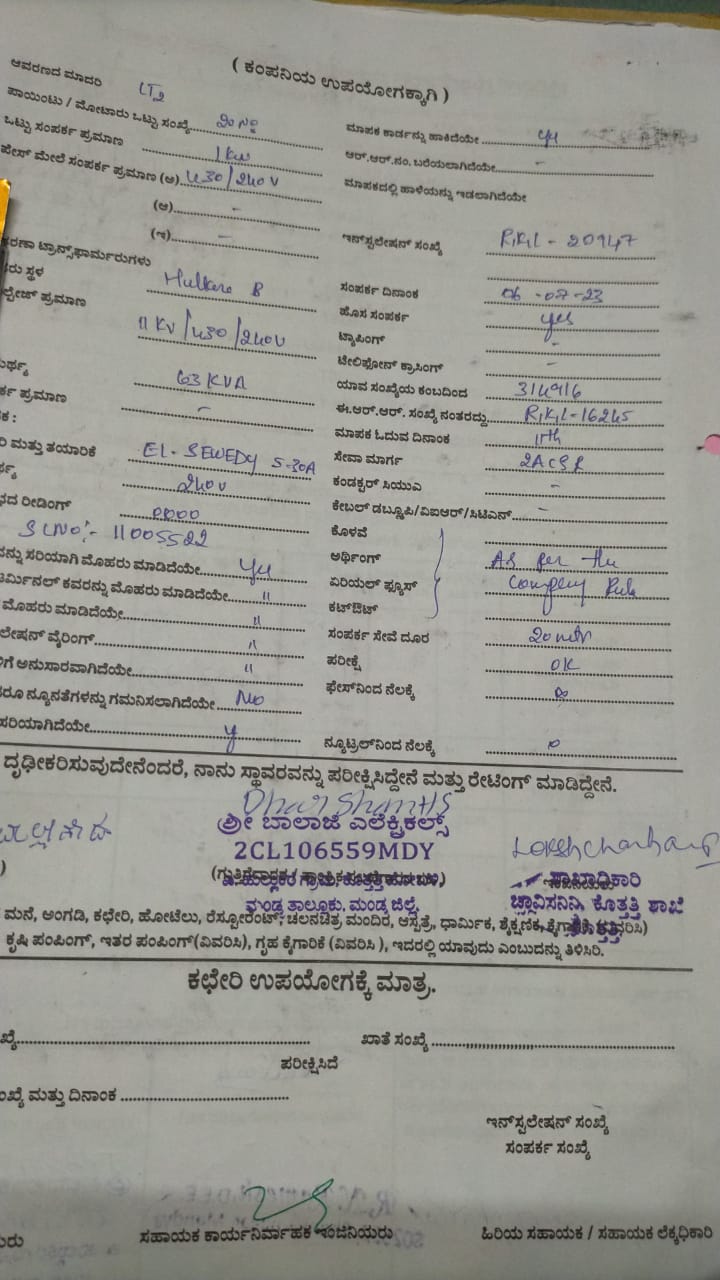 ( ಕಂಪನಿಯ ಉಪಯೋಗಕ್ಕಾಗಿ )
ಆವರಣದ ಮಾದರಿ LT2
ಪಾಯಿಂಟು / ಮೋಟಾರು ಒಟ್ಟು ಸಂಖ್ಯೆ
ಒಟ್ಟು ಸಂಪರ್ಕ ಪ್ರಮಾಣ 1 KW
ಪೇಸ್ ಮೇಲೆ ಸಂಪರ್ಕ ಪ್ರಮಾಣ (ಅ) 430/240V
(ಆ) -
(ಇ) -
ಕರಣಾ ಟ್ರಾನ್ಸ್‌ಫಾರ್ಮರುಗಳು
ರು ಸ್ಥಳ Mulkere B
ಲ್ಟೇಜ್ ಪ್ರಮಾಣ 11 KV/430/240V
63 KVA
ರ್ಕ ಪ್ರಮಾಣ -
ರಿ ಮತ್ತು ತಯಾರಿಕೆ EL- SEWEDY 5-30A
240V
ನದ ರೀಡಿಂಗ್ 0000
SLNO:- 11005522
ವನ್ನು ಸರಿಯಾಗಿ ಮೊಹರು ಮಾಡಿದೆಯೇ yes
ಟರ್ಮಿನಲ್ ಕವರನ್ನು ಮೊಹರು ಮಾಡಿದೆಯೇ "
ಮೊಹರು ಮಾಡಿದೆಯೇ "
ಲೇಷನ್ ವೈರಿಂಗ್ "
ಳಿಗೆ ಅನುಸಾರವಾಗಿದೆಯೇ "
ದರೂ ನ್ಯೂನತೆಗಳನ್ನು ಗಮನಿಸಲಾಗಿದೆಯೇ No
ಸರಿಯಾಗಿದೆಯೇ y
ಮಾಪಕ ಕಾರ್ಡನ್ನು ಹಾಕಿದೆಯೇ yes
ಆರ್.ಆರ್.ನಂ. ಬರೆಯಲಾಗಿದೆಯೇ -
ಮಾಪಕದಲ್ಲಿ ಹಾಳೆಯನ್ನು ಇಡಲಾಗಿದೆಯೇ
ಇನ್‌ಸ್ಟಲೇಷನ್ ಸಂಖ್ಯೆ RKL - 20947
ಸಂಪರ್ಕ ದಿನಾಂಕ 06-07-23
ಹೊಸ ಸಂಪರ್ಕ yes
ಟ್ಯಾಪಿಂಗ್ -
ಟೆಲಿಫೋನ್ ಕ್ರಾಸಿಂಗ್ -
ಯಾವ ಸಂಖ್ಯೆಯ ಕಂಬದಿಂದ 314916
ಈ.ಆರ್.ಆರ್. ಸಂಖ್ಯೆ ನಂತರದ್ದು RKL-16245
ಮಾಪಕ ಓದುವ ದಿನಾಂಕ
ಸೇವಾ ಮಾರ್ಗ 2ACSR
ಕಂಡಕ್ಟರ್ ಸಿಯುವಿ -
ಕೇಬಲ್ ಡಬ್ಲೂಪಿ/ವಿಐಆರ್/ಸಿಟಿಎನ್ -
ಕೊಳವೆ
ಅರ್ಥಿಂಗ್ As per the
ಏರಿಯಲ್ ಫ್ಯೂಸ್ Company Rule
ಕಟ್‌ಔಟ್
ಸಂಪರ್ಕ ಸೇವೆ ದೂರ 20 mtr
ಪರೀಕ್ಷೆ OK
ಫೇಸ್‌ನಿಂದ ನೆಲಕ್ಕೆ
ನ್ಯೂಟ್ರಲ್‌ನಿಂದ ನೆಲಕ್ಕೆ
ದೃಢೀಕರಿಸುವುದೇನೆಂದರೆ, ನಾನು ಸ್ಥಾವರವನ್ನು ಪರೀಕ್ಷಿಸಿದ್ದೇನೆ ಮತ್ತು ರೇಟಿಂಗ್ ಮಾಡಿದ್ದೇನೆ.
ಶ್ರೀ ಬಾಲಾಜಿ ಎಲೆಕ್ಟ್ರಿಕಲ್ಸ್
2CL106559MDY
ಮಂಡ್ಯ ತಾಲ್ಲೂಕು, ಮಂಡ್ಯ ಜಿಲ್ಲೆ.
ಶಾಖಾಧಿಕಾರಿ
ಚಾವಿಸನಿನಿ, ಕೊತ್ತತ್ತಿ ಶಾಖೆ
ಮನೆ, ಅಂಗಡಿ, ಕಛೇರಿ, ಹೋಟೆಲು, ರೆಸ್ಟೋರೆಂಟ್, ಚಲನಚಿತ್ರ ಮಂದಿರ, ಆಸ್ಪತ್ರೆ, ಧಾರ್ಮಿಕ, ಶೈಕ್ಷಣಿಕ,
ಕೃಷಿ ಪಂಪಿಂಗ್, ಇತರ ಪಂಪಿಂಗ್(ವಿವರಿಸಿ), ಗೃಹ ಕೈಗಾರಿಕೆ (ವಿವರಿಸಿ ), ಇದರಲ್ಲಿ ಯಾವುದು ಎಂಬುದನ್ನು ತಿಳಿಸಿರಿ.
ಕಛೇರಿ ಉಪಯೋಗಕ್ಕೆ ಮಾತ್ರ.
ಖ್ಯೆ ಖಾತೆ ಸಂಖ್ಯೆ
ಪರೀಕ್ಷಿಸಿದೆ
ಂಖ್ಯೆ ಮತ್ತು ದಿನಾಂಕ
ಇನ್‌ಸ್ಟಲೇಷನ್ ಸಂಖ್ಯೆ
ಸಂಪರ್ಕ ಸಂಖ್ಯೆ
ಯರು ಸಹಾಯಕ ಕಾರ್ಯನಿರ್ವಾಹಕ ಇಂಜಿನಿಯರು ಹಿರಿಯ ಸಹಾಯಕ / ಸಹಾಯಕ ಲೆಕ್ಕಧಿಕಾರಿ